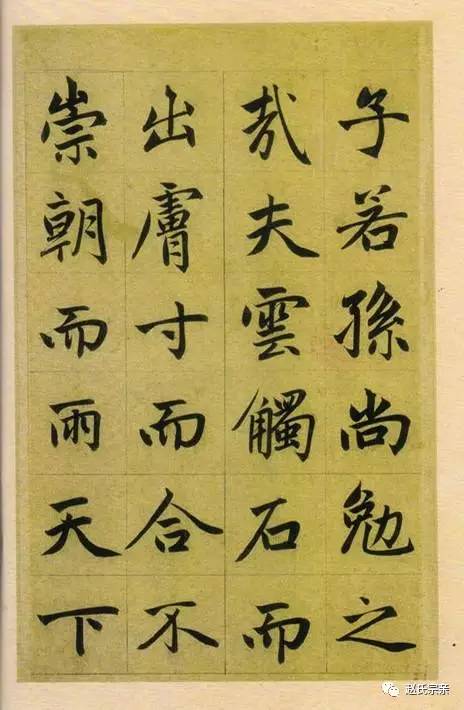 子若孫尚勉之
哉夫雲觸石而
出膚寸而合不
崇朝而雨天下
赵氏宗亲